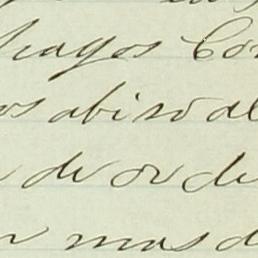 hagos Cor
os abiso al
de orde
mas d